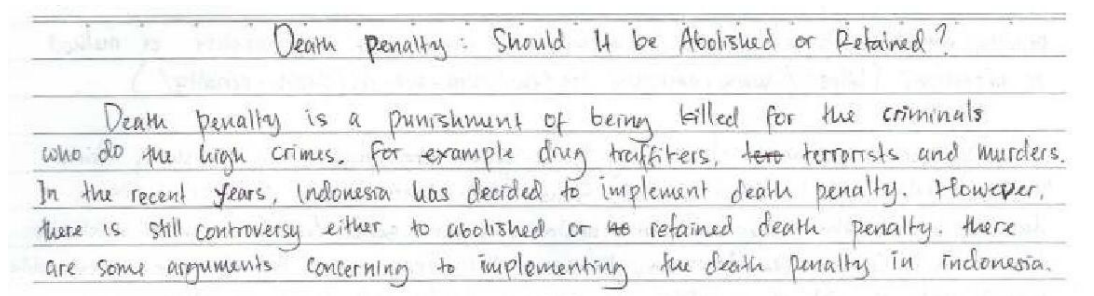 Death Penalty : Should It be Abolished or Retained?
Death penalty is a punishment of being killed for the criminals
who do the high crimes, for example drug traffikers, tero terrorists and murders.
In the recent years, Indonesia has decided to implement death penalty. However,
there is still controversy either to abolished or to retained death penalty. there
are some arguments concerning to implementing the death penalty in indonesia.